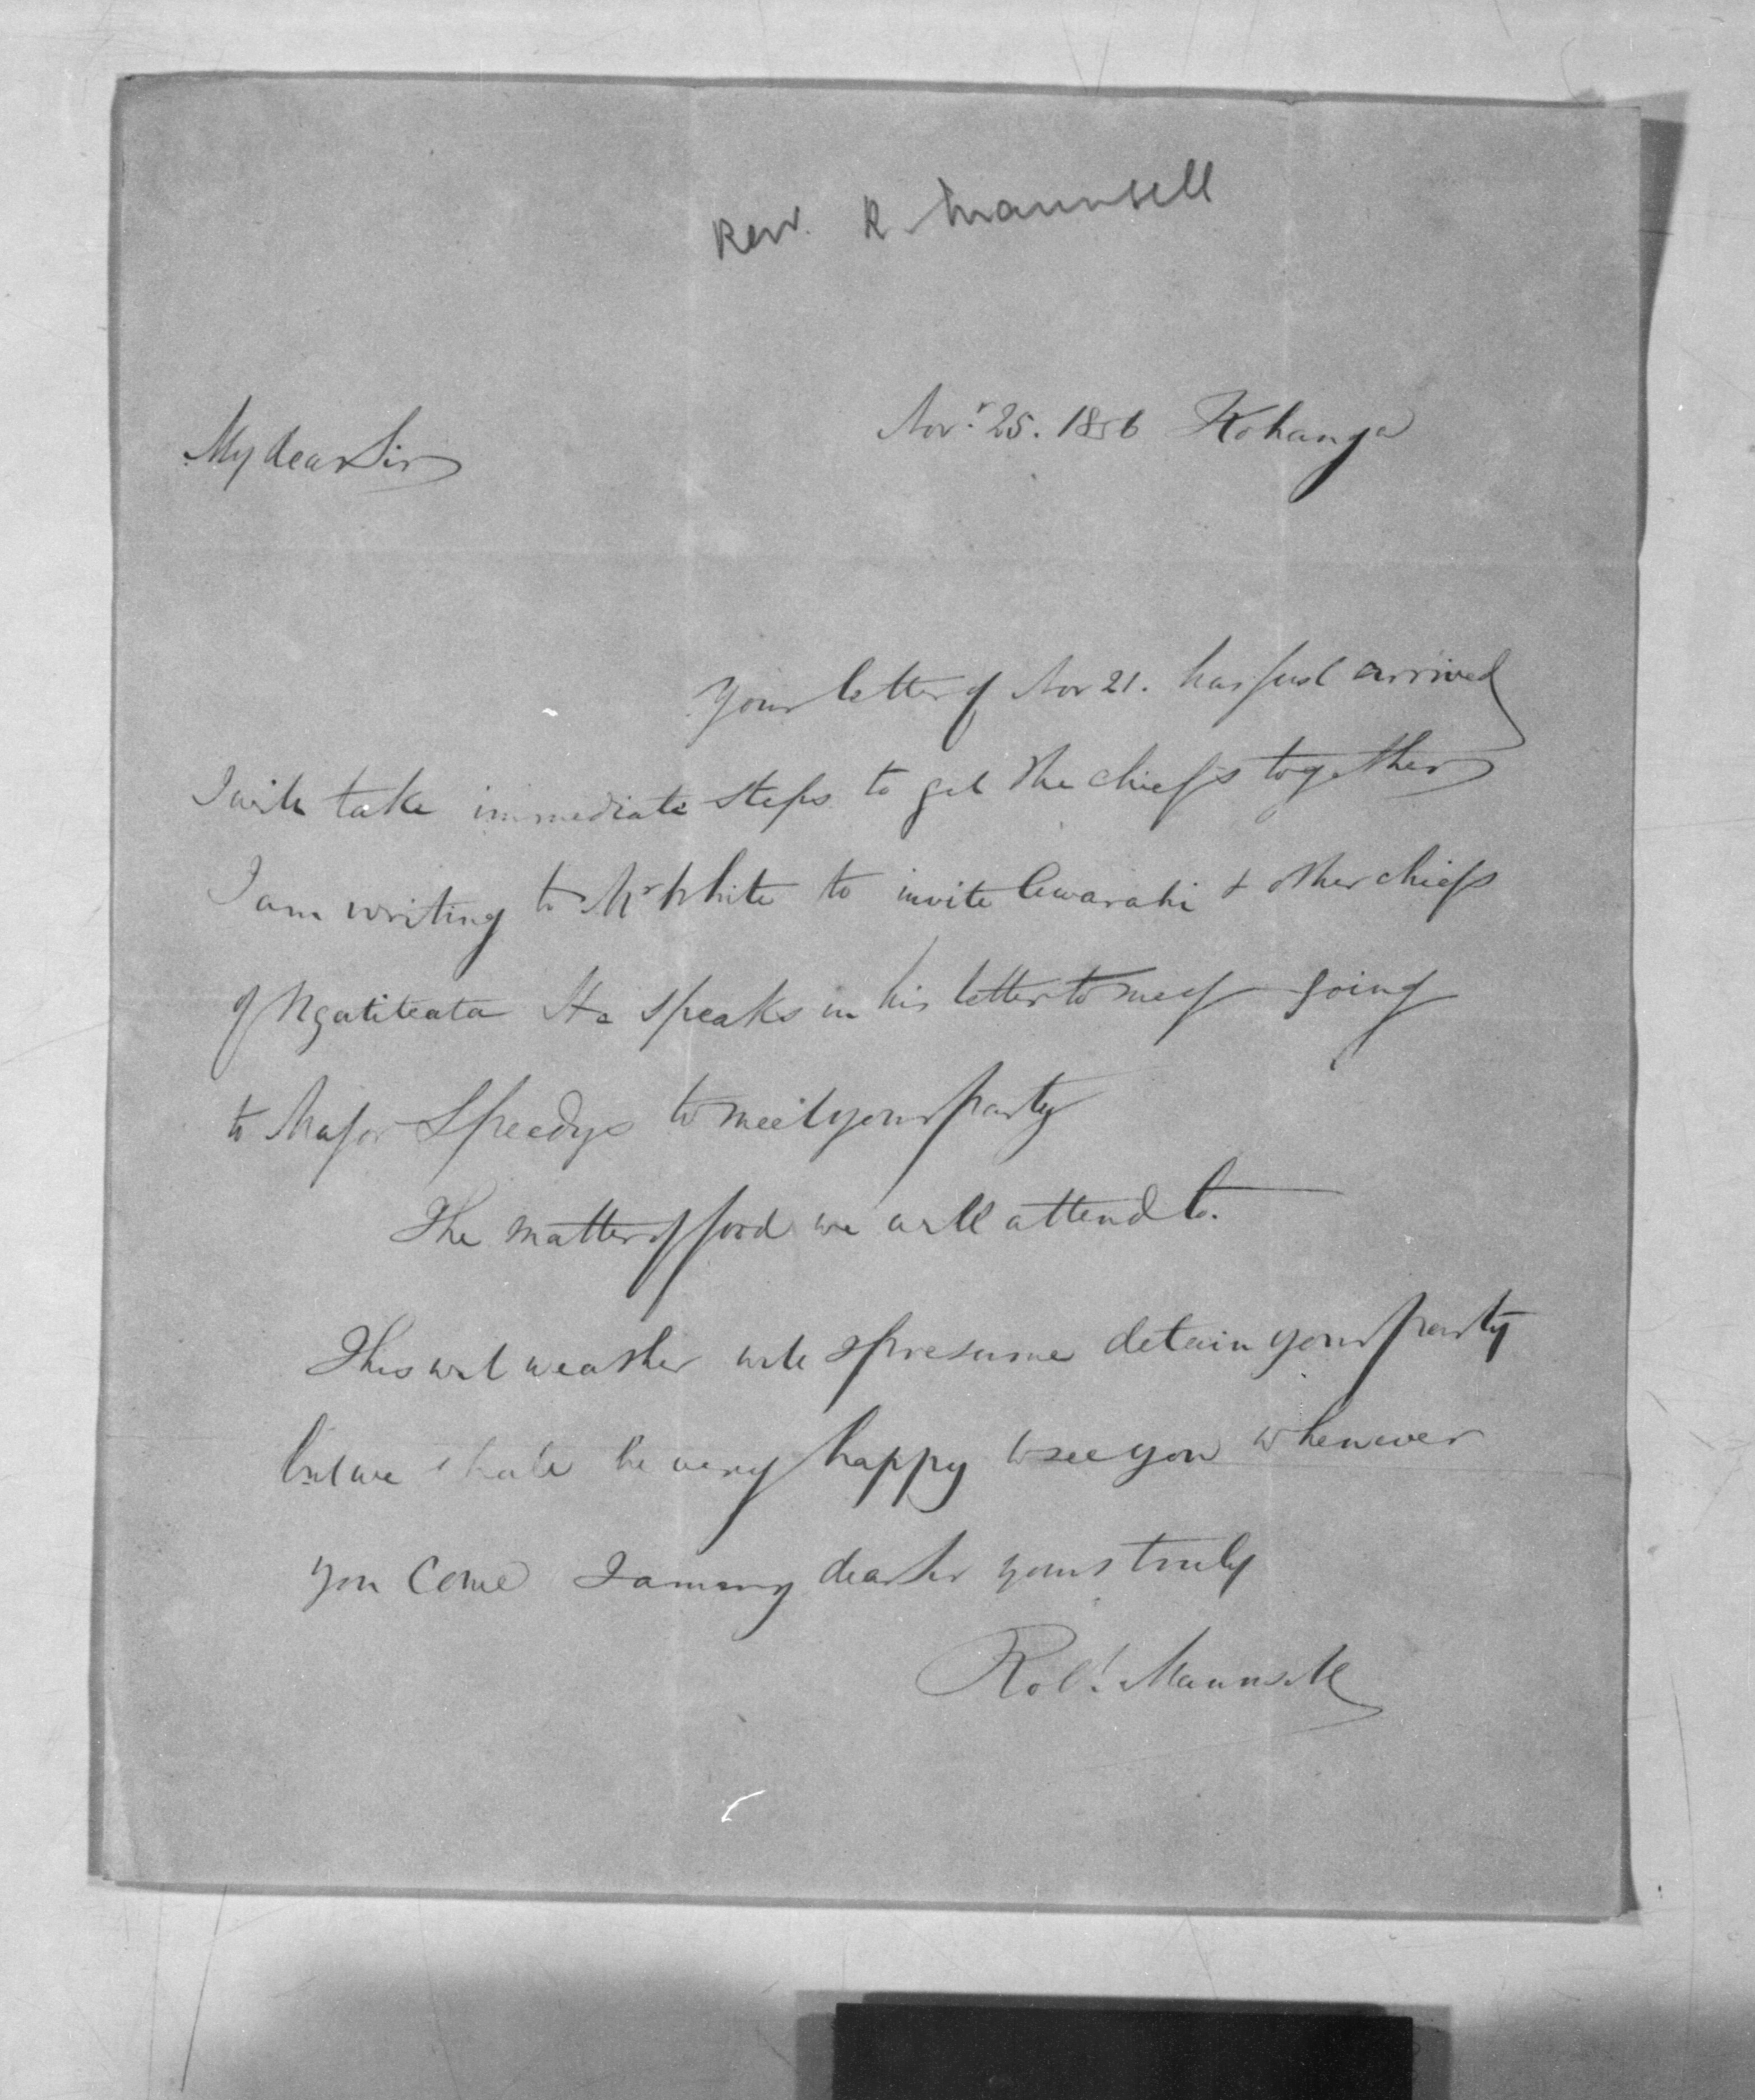 Rev. R. Maunsell
Novr. 25. 1856 Kohanga
My dear Sir
Your letter of Nov 21. has just arrived
I will take immediate steps to get the chiefs together
I am writing to Mr White to invite & other chiefs
of Ngatiteata He speaks in his letter to me of going
to Major Speedys to meet your party
The matter of food we will attend to.
This wet weather will I presume detain your party
but we shall be very happy to see you whenever
you come I am my dear Sir yours truly
Robt. Maunsell